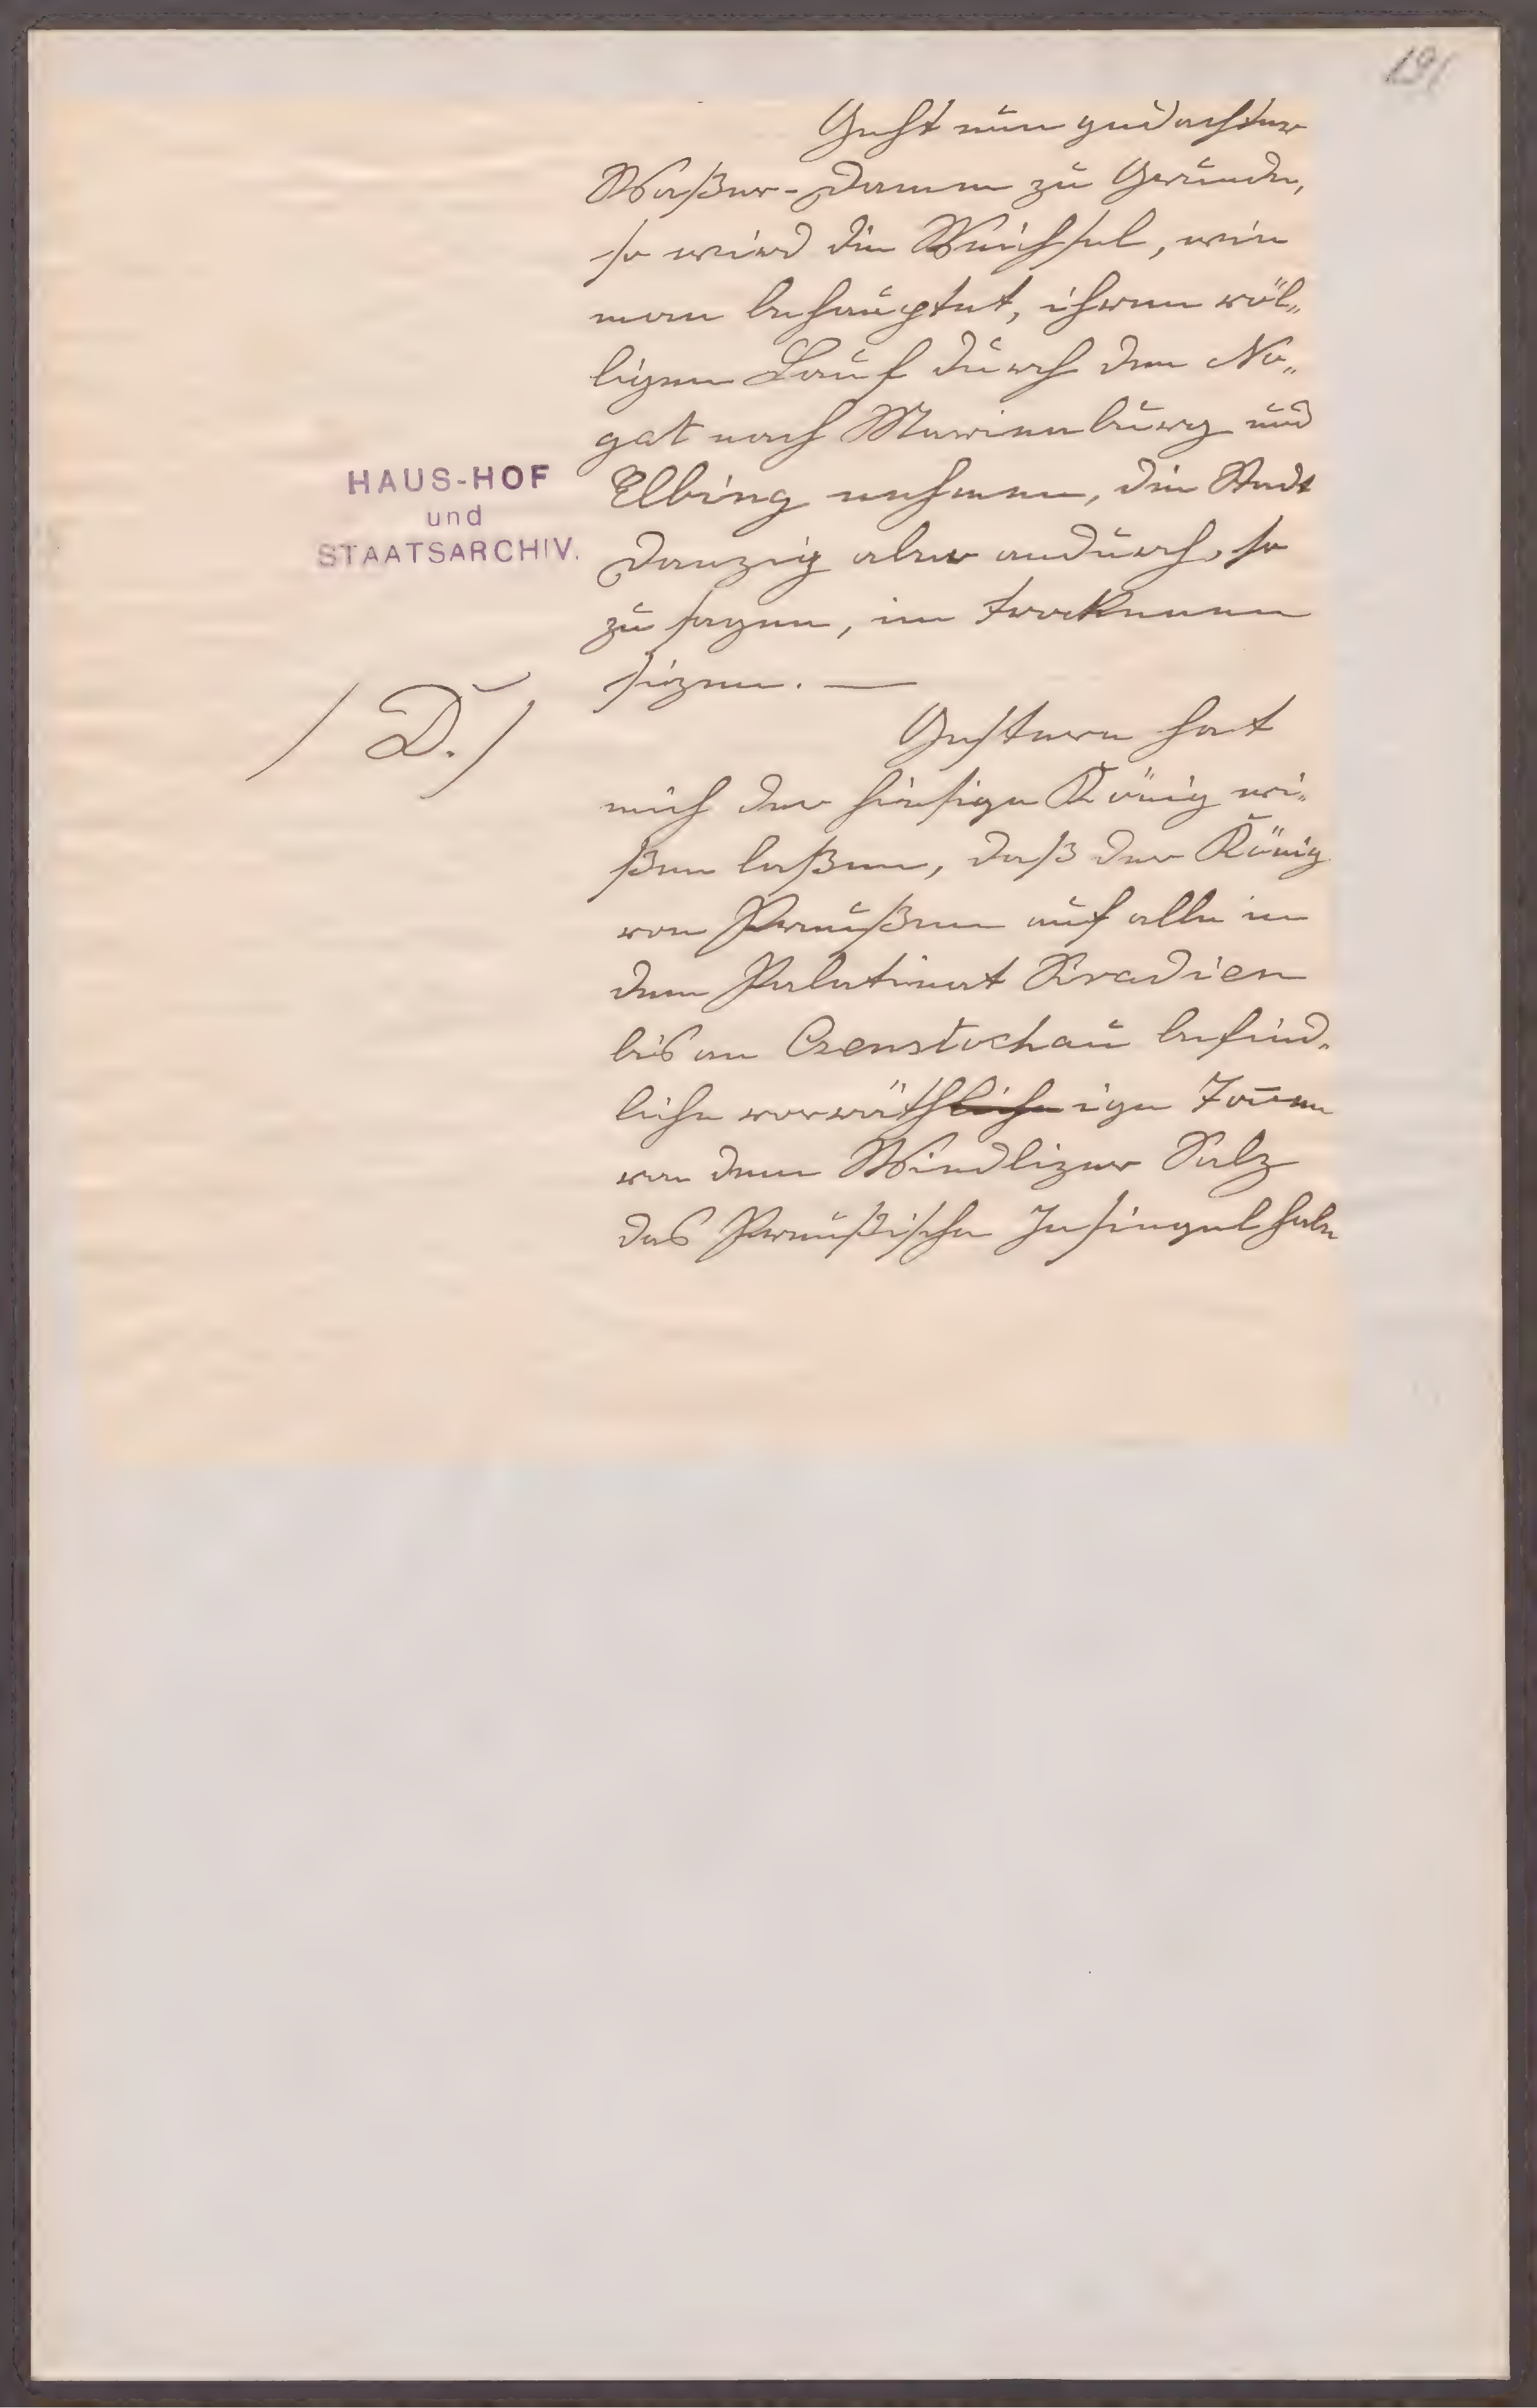 191
Geht nun gedachter
Waßer-Damm zu Grunde,
so wird die Weichsel, wie
man behauptet, ihren völ„
ligen Lauf durch den No„
gat nach Marienburg und
Elbing nehmen, die Stadt
Danzig aber andurch, so
zu sagen, im trockenen
sizen. —
HAUS-HOF
und
STAATSARCHIV.
/ D. /
Gestern hat
mich der hiesige König wi„
ßen laßen, daß der König
von Preußen auf alle in
dem Palatinat Siradien
bis an Czenstochau befind„
liche vorräthliche ige Toñen
von dem Windlizer Salz
das Preußische Insiegel habe